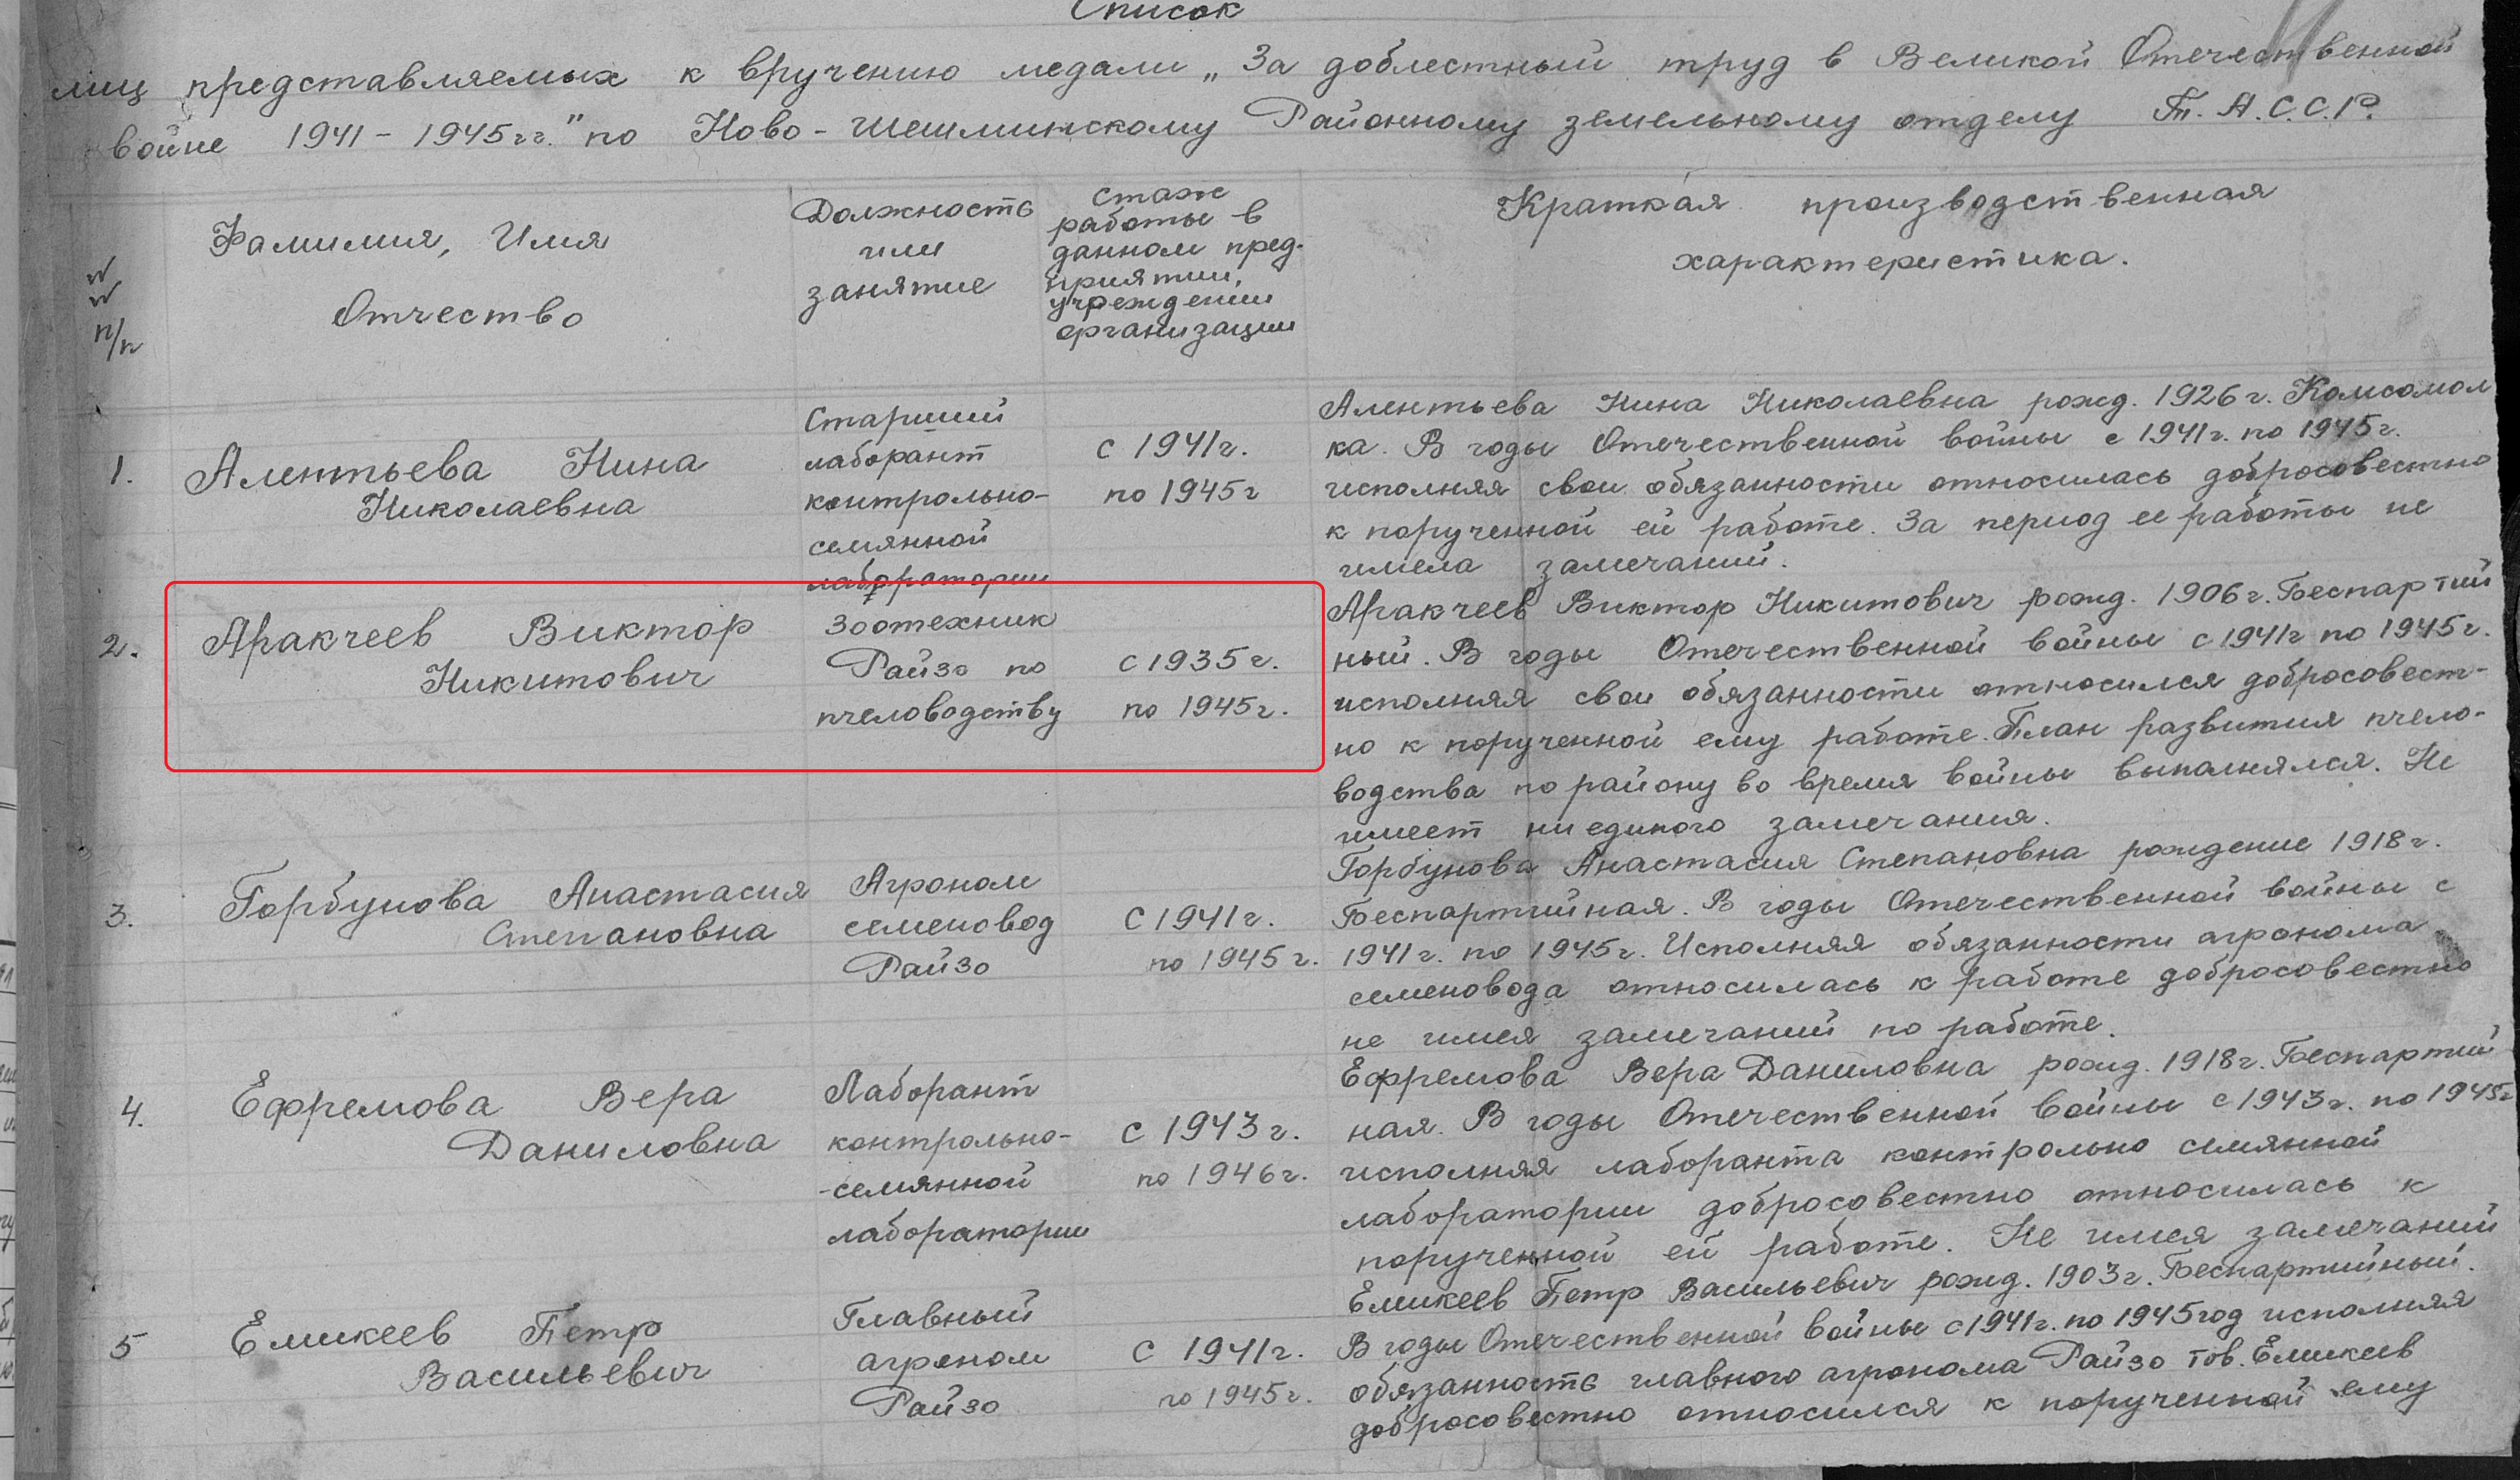 Список
лиц представляемых к вручению медали „За доблестный труд в Великой Отечественной
войне 1941-1945гг." по Ново-Шешминскому Районному земельному отделу Т.А.С.С.Р.
№№ п/п
Фамилия, Имя
Отчество
Должность
или
занятие
Стаж
работы в
данном пред-
приятии,
учреждении
организации
Краткая производственная
характеристика.
1.
Алентьева Нина
Николаевна
Старший
лаборант
контрольно-
семянной
лаборатории
с 1941г.
по 1945г
Алентьева Нина Николаевна рожд. 1926г. Комсомол
ка. В годы Отечественной войны с 1941г. по 1945г.
исполняя свои обязанности относилась добросовестно
к порученной ей работе. За период ее работы не
имела замечаний.
2.
Аракчеев Виктор
Никитович
Зоотехник
Райзо по
пчеловодству
с 1935г.
по 1945г.
Аракчеев Виктор Никитович рожд. 1906г. Беспартий
ный. В годы Отечественной войны с 1941г по 1945г.
исполняя свои обязанности относился добросовест-
но к порученной ему работе. План развития пчело-
водства по району во время войны выполнялся. Не
имеет ни единого замечания.
3.
Горбунова Анастасия
Степановна
Агроном
семеновод
Райзо
С 1941г.
по 1945г.
Горбунова Анастасия Степановна рождение 1918г.
Беспартийная. В годы Отечественной войны с
1941г. по 1945г. Исполняя обязанности агронома
семеновода относилась к работе добросовестно
не имея замечаний по работе.
4.
Ефремова Вера
Даниловна
Лаборант
контрольно-
-семянной
лаборатории
с 1943г.
по 1946г.
Ефремова Вера Даниловна рожд. 1918г. Беспартий
ная. В годы Отечественной войны с 1943г. по 1945г
исполняя лаборанта контрольно семянной
лаборатории добросовестно относилась к
порученной ей работе. Не имея замечаний
5
Емикеев Петр
Васильевич
Главный
агроном
Райзо
с 1941г.
по 1945г.
Емикеев Петр Васильевич рожд. 1903г. Беспартийный.
В годы Отечественной войны с 1941г. по 1945год исполняя
обязанность главного агронома Райзо тов. Емикеев
добросовестно относился к порученной ему